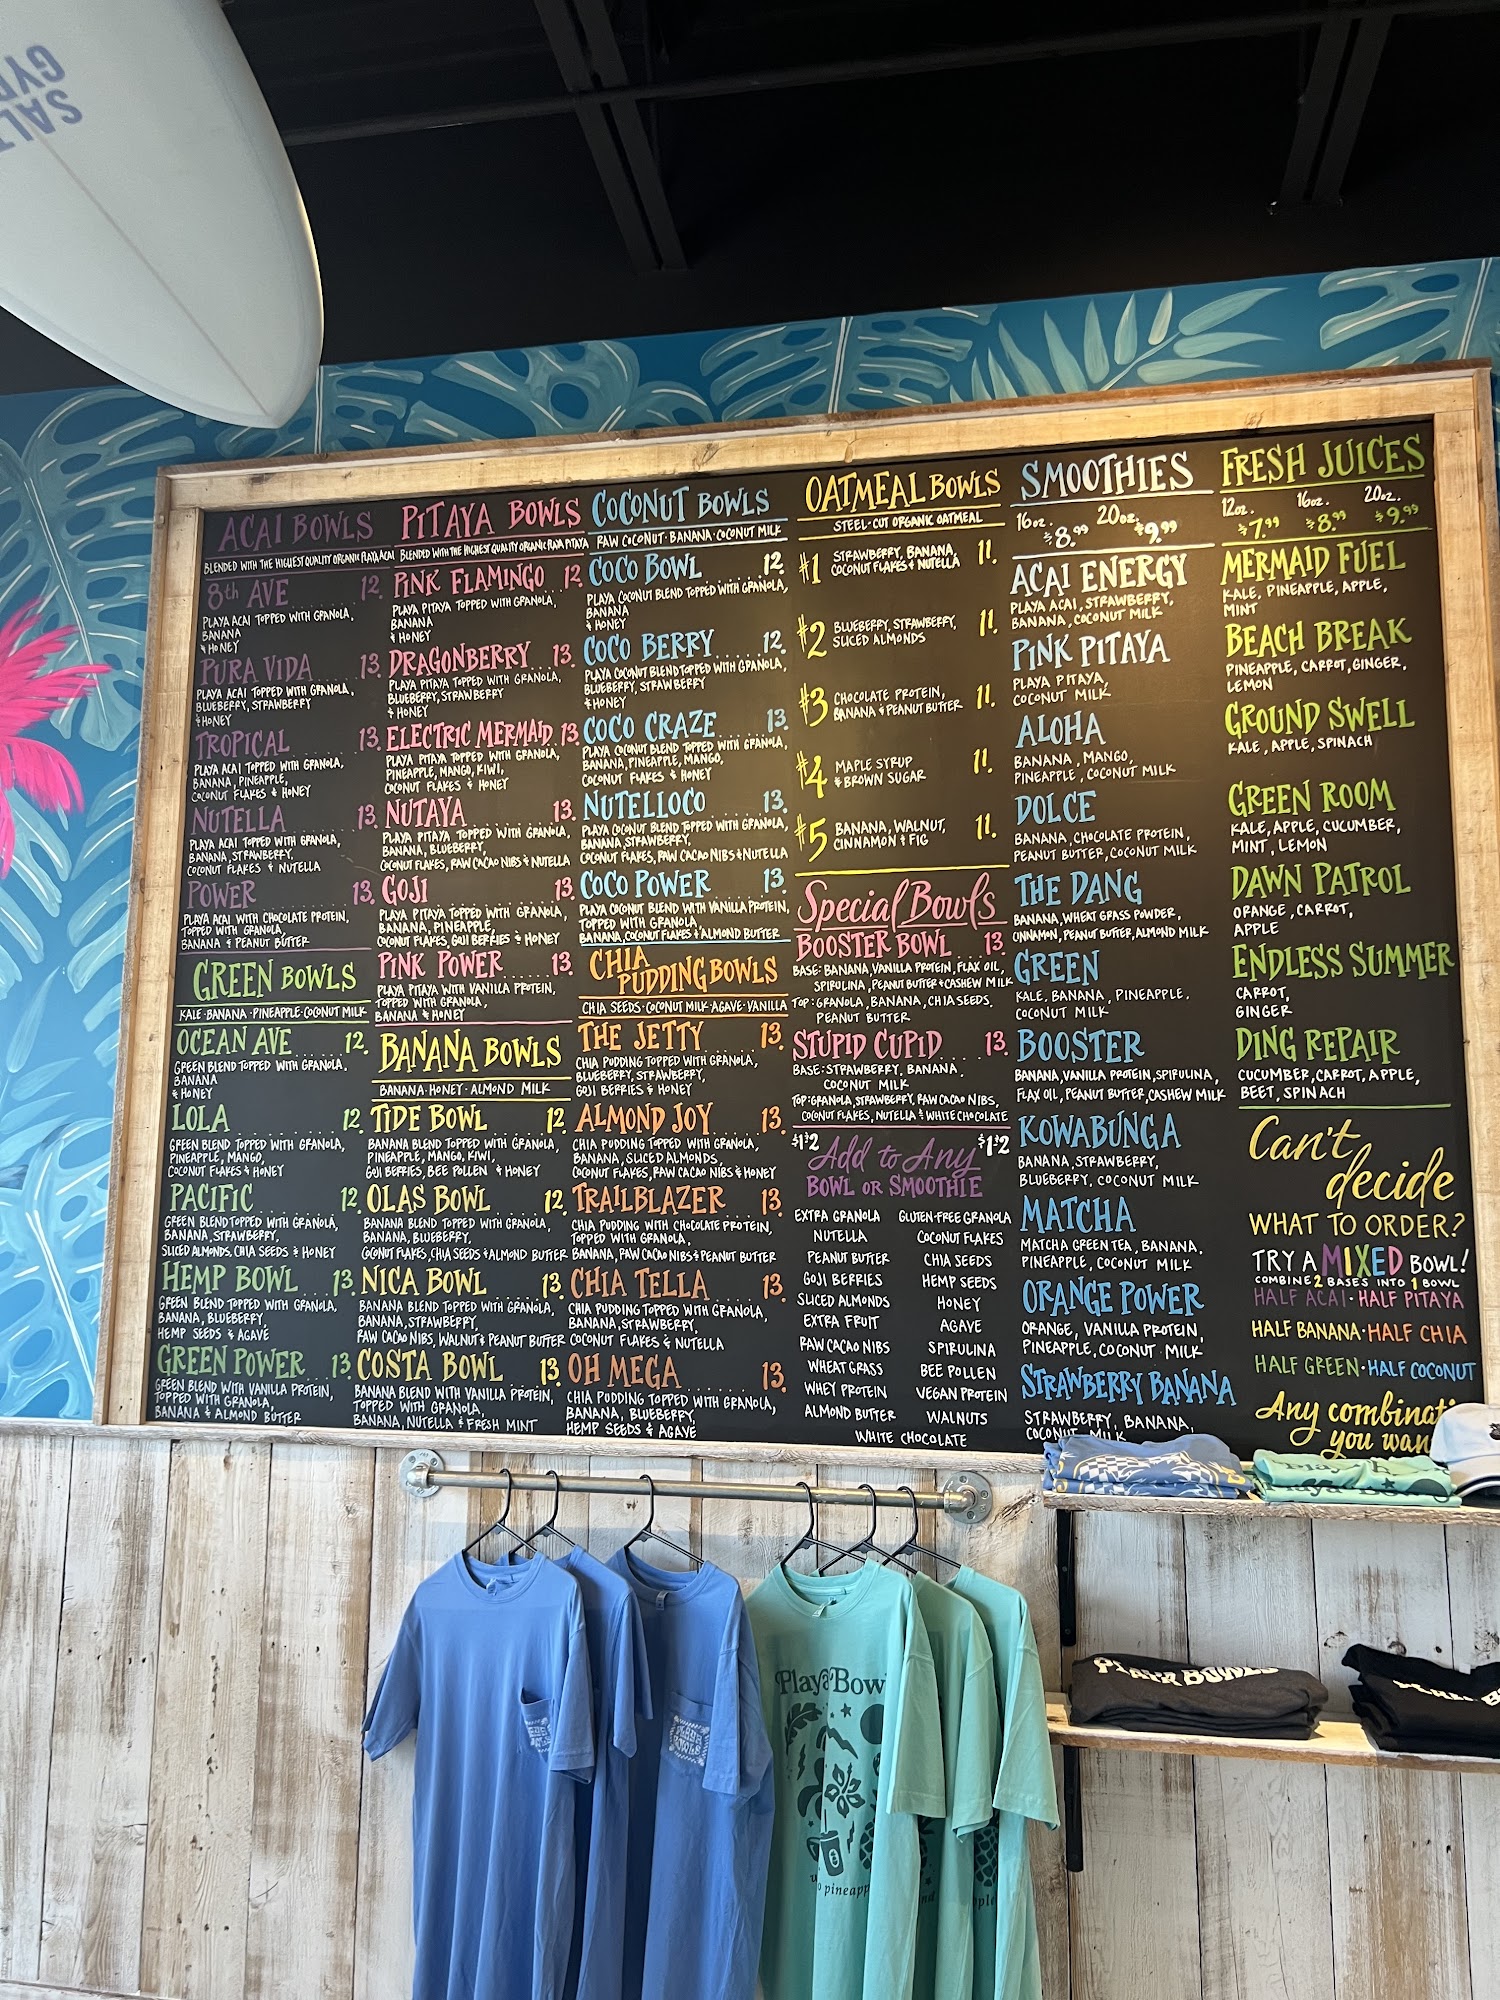 SALT
GYP
ACAI BOWLS
BLENDED WITH THE HIGHEST QUALITY ORGANIC PLAYA ACAI
8th AVE 12.
PLAYA ACAI TOPPED WITH GRANOLA,
BANANA
& HONEY
PURA VIDA 13.
PLAYA ACAI TOPPED WITH GRANOLA,
BLUEBERRY, STRAWBERRY
& HONEY
TROPICAL 13.
PLAYA ACAI TOPPED WITH GRANOLA,
BANANA, PINEAPPLE,
COCONUT FLAKES & HONEY
NUTELLA 13.
PLAYA ACAI TOPPED WITH GRANOLA,
BANANA, STRAWBERRY,
COCONUT FLAKES & NUTELLA
POWER 13.
PLAYA ACAI WITH CHOCOLATE PROTEIN,
TOPPED WITH GRANOLA,
BANANA & PEANUT BUTTER
GREEN BOWLS
KALE · BANANA · PINEAPPLE · COCONUT MILK
OCEAN AVE 12.
GREEN BLEND TOPPED WITH GRANOLA,
BANANA
& HONEY
LOLA 12.
GREEN BLEND TOPPED WITH GRANOLA,
PINEAPPLE, MANGO,
COCONUT FLAKES & HONEY
PACIFIC 12.
GREEN BLEND TOPPED WITH GRANOLA,
BANANA, STRAWBERRY,
SLICED ALMONDS, CHIA SEEDS & HONEY
HEMP BOWL 13.
GREEN BLEND TOPPED WITH GRANOLA,
BANANA, BLUEBERRY,
HEMP SEEDS & AGAVE
GREEN POWER 13.
GREEN BLEND WITH VANILLA PROTEIN,
TOPPED WITH GRANOLA,
BANANA & ALMOND BUTTER
PITAYA BOWLS
BLENDED WITH THE HIGHEST QUALITY ORGANIC PLAYA PITAYA
PINK FLAMINGO 12.
PLAYA PITAYA TOPPED WITH GRANOLA,
BANANA
& HONEY
DRAGONBERRY 13.
PLAYA PITAYA TOPPED WITH GRANOLA,
BLUEBERRY, STRAWBERRY
& HONEY
ELECTRIC MERMAID 13.
PLAYA PITAYA TOPPED WITH GRANOLA,
PINEAPPLE, MANGO, KIWI,
COCONUT FLAKES & HONEY
NUTAYA 13.
PLAYA PITAYA TOPPED WITH GRANOLA,
BANANA, BLUEBERRY,
COCONUT FLAKES, RAW CACAO NIBS & NUTELLA
GOJI 13.
PLAYA PITAYA TOPPED WITH GRANOLA,
BANANA, PINEAPPLE,
COCONUT FLAKES, GOJI BERRIES & HONEY
PINK POWER 13.
PLAYA PITAYA WITH VANILLA PROTEIN,
TOPPED WITH GRANOLA,
BANANA & HONEY
BANANA BOWLS
BANANA · HONEY · ALMOND MILK
TIDE BOWL 12.
BANANA BLEND TOPPED WITH GRANOLA,
PINEAPPLE, MANGO, KIWI,
GOJI BERRIES, BEE POLLEN & HONEY
OLAS BOWL 12.
BANANA BLEND TOPPED WITH GRANOLA,
BANANA, BLUEBERRY,
COCONUT FLAKES, CHIA SEEDS & ALMOND BUTTER
NICA BOWL 13.
BANANA BLEND TOPPED WITH GRANOLA,
BANANA, STRAWBERRY,
RAW CACAO NIBS, WALNUT & PEANUT BUTTER
COSTA BOWL 13.
BANANA BLEND WITH VANILLA PROTEIN,
TOPPED WITH GRANOLA,
BANANA, NUTELLA & FRESH MINT
COCONUT BOWLS
RAW COCONUT · BANANA · COCONUT MILK
COCO BOWL 12.
PLAYA COCONUT BLEND TOPPED WITH GRANOLA,
BANANA
& HONEY
COCO BERRY 12.
PLAYA COCONUT BLEND TOPPED WITH GRANOLA,
BLUEBERRY, STRAWBERRY
& HONEY
COCO CRAZE 13.
PLAYA COCONUT BLEND TOPPED WITH GRANOLA,
BANANA, PINEAPPLE, MANGO,
COCONUT FLAKES & HONEY
NUTELLOCO 13.
PLAYA COCONUT BLEND TOPPED WITH GRANOLA,
BANANA, STRAWBERRY,
COCONUT FLAKES, RAW CACAO NIBS & NUTELLA
COCO POWER 13.
PLAYA COCONUT BLEND WITH VANILLA PROTEIN,
TOPPED WITH GRANOLA,
BANANA, COCONUT FLAKES & ALMOND BUTTER
CHIA
PUDDING BOWLS
CHIA SEEDS · COCONUT MILK · AGAVE · VANILLA
THE JETTY 13.
CHIA PUDDING TOPPED WITH GRANOLA,
BLUEBERRY, STRAWBERRY,
GOJI BERRIES & HONEY
ALMOND JOY 13.
CHIA PUDDING TOPPED WITH GRANOLA,
BANANA, SLICED ALMONDS,
COCONUT FLAKES, RAW CACAO NIBS & HONEY
TRAILBLAZER 13.
CHIA PUDDING WITH CHOCOLATE PROTEIN,
TOPPED WITH GRANOLA,
BANANA, RAW CACAO NIBS & PEANUT BUTTER
CHIA TELLA 13.
CHIA PUDDING TOPPED WITH GRANOLA,
BANANA, STRAWBERRY,
COCONUT FLAKES & NUTELLA
OH MEGA 13.
CHIA PUDDING TOPPED WITH GRANOLA,
BANANA, BLUEBERRY,
HEMP SEEDS & AGAVE
OATMEAL BOWLS
STEEL-CUT ORGANIC OATMEAL
#1 STRAWBERRY, BANANA, 11.
COCONUT FLAKES & NUTELLA
#2 BLUEBERRY, STRAWBERRY, 11.
SLICED ALMONDS
#3 CHOCOLATE PROTEIN, 11.
BANANA & PEANUT BUTTER
#4 MAPLE SYRUP 11.
& BROWN SUGAR
#5 BANANA, WALNUT, 11.
CINNAMON & FIG
Special Bowls
BOOSTER BOWL 13.
BASE: BANANA, VANILLA PROTEIN, FLAX OIL,
SPIRULINA, PEANUT BUTTER & CASHEW MILK
TOP: GRANOLA, BANANA, CHIA SEEDS,
PEANUT BUTTER
STUPID CUPID 13.
BASE: STRAWBERRY, BANANA,
COCONUT MILK
TOP: GRANOLA, STRAWBERRY, RAW CACAO NIBS,
COCONUT FLAKES, NUTELLA & WHITE CHOCOLATE
Add to Any
BOWL OR SMOOTHIE
EXTRA GRANOLA GLUTEN-FREE GRANOLA
NUTELLA COCONUT FLAKES
PEANUT BUTTER CHIA SEEDS
GOJI BERRIES HEMP SEEDS
SLICED ALMONDS HONEY
EXTRA FRUIT AGAVE
RAW CACAO NIBS SPIRULINA
WHEAT GRASS BEE POLLEN
WHEY PROTEIN VEGAN PROTEIN
ALMOND BUTTER WALNUTS
WHITE CHOCOLATE
SMOOTHIES
16oz. 20oz.
$8.99 $9.99
ACAI ENERGY
PLAYA ACAI, STRAWBERRY,
BANANA, COCONUT MILK
PINK PITAYA
PLAYA PITAYA,
COCONUT MILK
ALOHA
BANANA, MANGO,
PINEAPPLE, COCONUT MILK
DOLCE
BANANA, CHOCOLATE PROTEIN,
PEANUT BUTTER, COCONUT MILK
THE DANG
BANANA, WHEAT GRASS POWDER,
CINNAMON, PEANUT BUTTER, ALMOND MILK
GREEN
KALE, BANANA, PINEAPPLE,
COCONUT MILK
BOOSTER
BANANA, VANILLA PROTEIN, SPIRULINA,
FLAX OIL, PEANUT BUTTER, CASHEW MILK
KOWABUNGA
BANANA, STRAWBERRY,
BLUEBERRY, COCONUT MILK
MATCHA
MATCHA GREEN TEA, BANANA,
PINEAPPLE, COCONUT MILK
ORANGE POWER
ORANGE, VANILLA PROTEIN,
PINEAPPLE, COCONUT MILK
STRAWBERRY BANANA
STRAWBERRY, BANANA,
COCONUT MILK
FRESH JUICES
12oz. 16oz. 20oz.
$7.99 $8.99 $9.99
MERMAID FUEL
KALE, PINEAPPLE, APPLE,
MINT
BEACH BREAK
PINEAPPLE, CARROT, GINGER,
LEMON
GROUND SWELL
KALE, APPLE, SPINACH
GREEN ROOM
KALE, APPLE, CUCUMBER,
MINT, LEMON
DAWN PATROL
ORANGE, CARROT,
APPLE
ENDLESS SUMMER
CARROT,
GINGER
DING REPAIR
CUCUMBER, CARROT, APPLE,
BEET, SPINACH
Can't
decide
WHAT TO ORDER?
TRY A MIXED BOWL!
COMBINE 2 BASES INTO 1 BOWL
HALF ACAI · HALF PITAYA
HALF BANANA · HALF CHIA
HALF GREEN · HALF COCONUT
Any combinati
you wan
PLAYA BOWLS
PLAYA BOWLS
Playa Bowl
pineapp